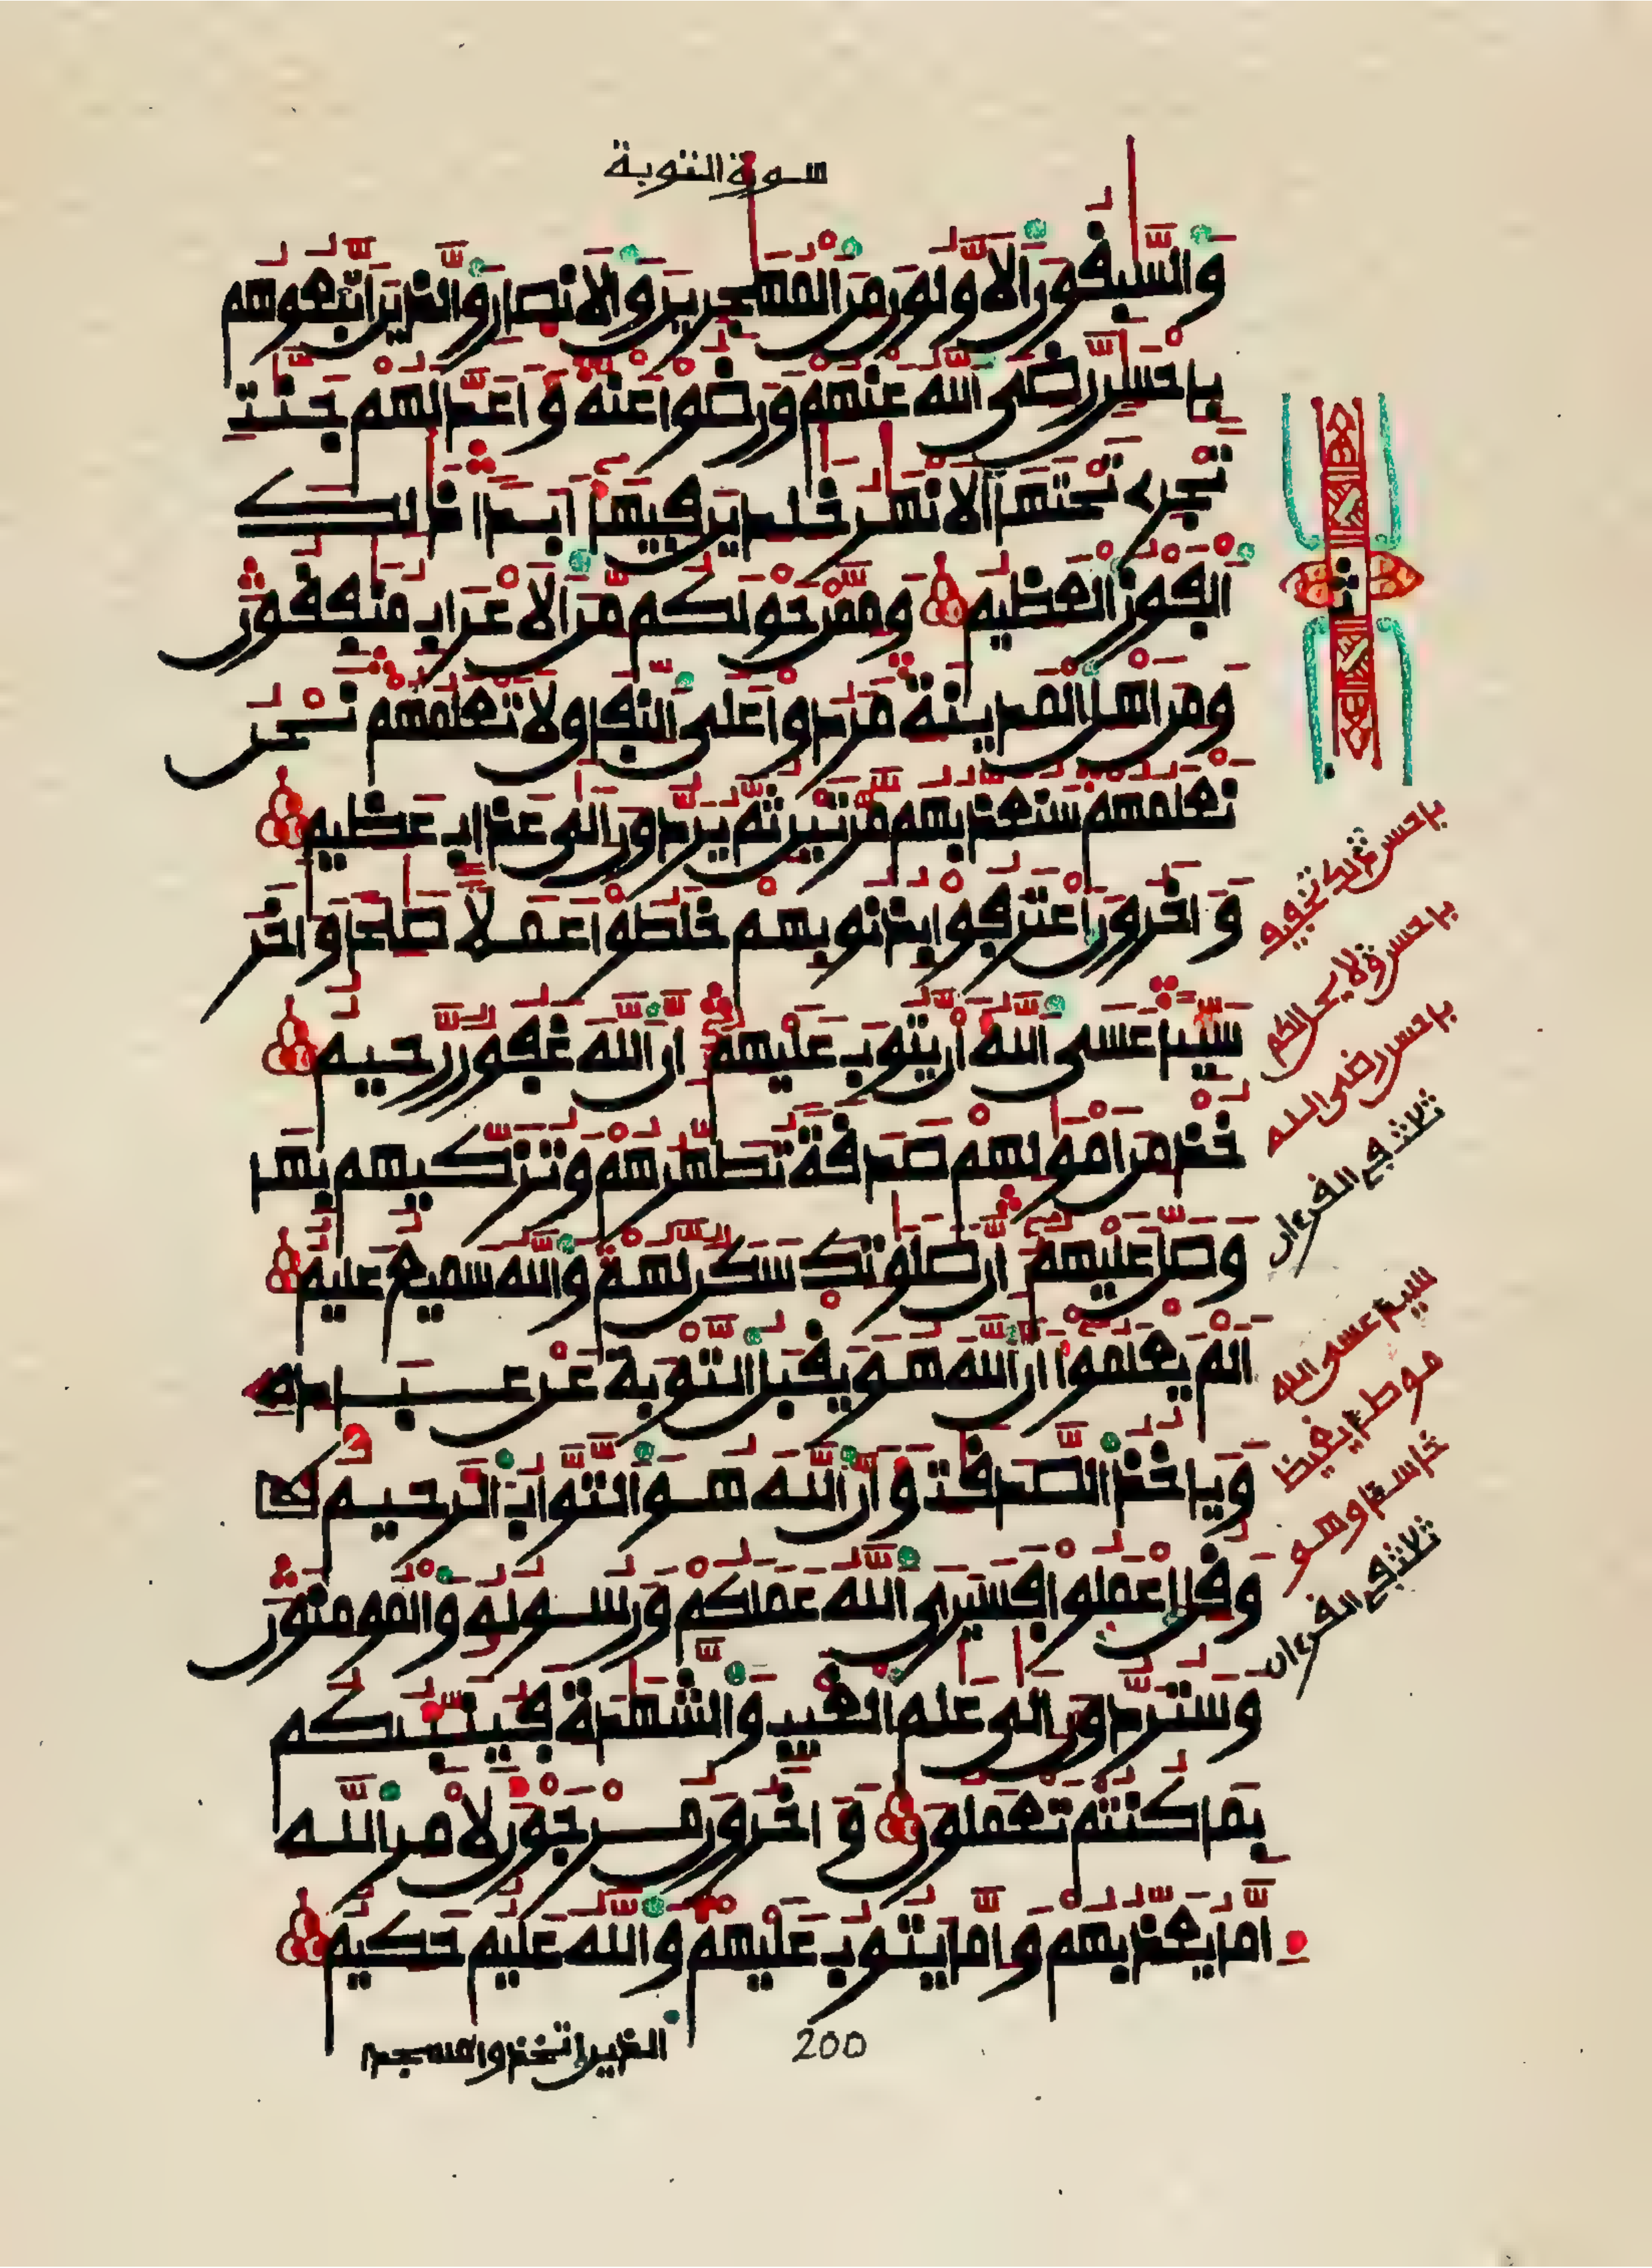 سورة التوبة
والسبقون الاولون من المهجرين والانصار والذين اتبعوهم
باحسن رضى الله عنهم ورضوا عنه واعد لهم جنت
تجرے تحتها الانهر خلدين فيها ابدا ذلك
الفوز العظيم وممن حولكم من الاعراب منفقون
ومن اهل المدينة مردوا على النفاق ولا تعلمهم نحن
نعلمهم سنعذبهم مرتين ثم يردون الى عذاب عظيم
وءاخرون اعترفوا بذنوبهم خلطوا عملا صلحا وءاخر
سييا عسى الله ان يتوب عليهم ان الله غفور رحيم
خذ من امولهم صدقة تطهرهم وتزكيهم بها
وصل عليهم ان صلوتك سكن لهم والله سميع عليم
الم يعلموا ان الله هو يقبل التوبة عن عباده
وياخذ الصدقت وان الله هو التواب الرحيم
وقل اعملوا فسيرى الله عملكم ورسوله والمومنون
وستردون الى علم الغيب والشهدة فينبيكم
بما كنتم تعملون وءاخرون مرجون لامر الله
اما يعذبهم واما يتوب عليهم والله عليم حكيم
الذين اتخذوا مسجدا
200
باحسن ذلك تخفيف
باحسن ولا يحل لكم
باحسن رضى الله
ثلاث في القرءان
سييا عسى الله
موطيا يغيظ
خاسيا وهو
ثلاث في القرءان